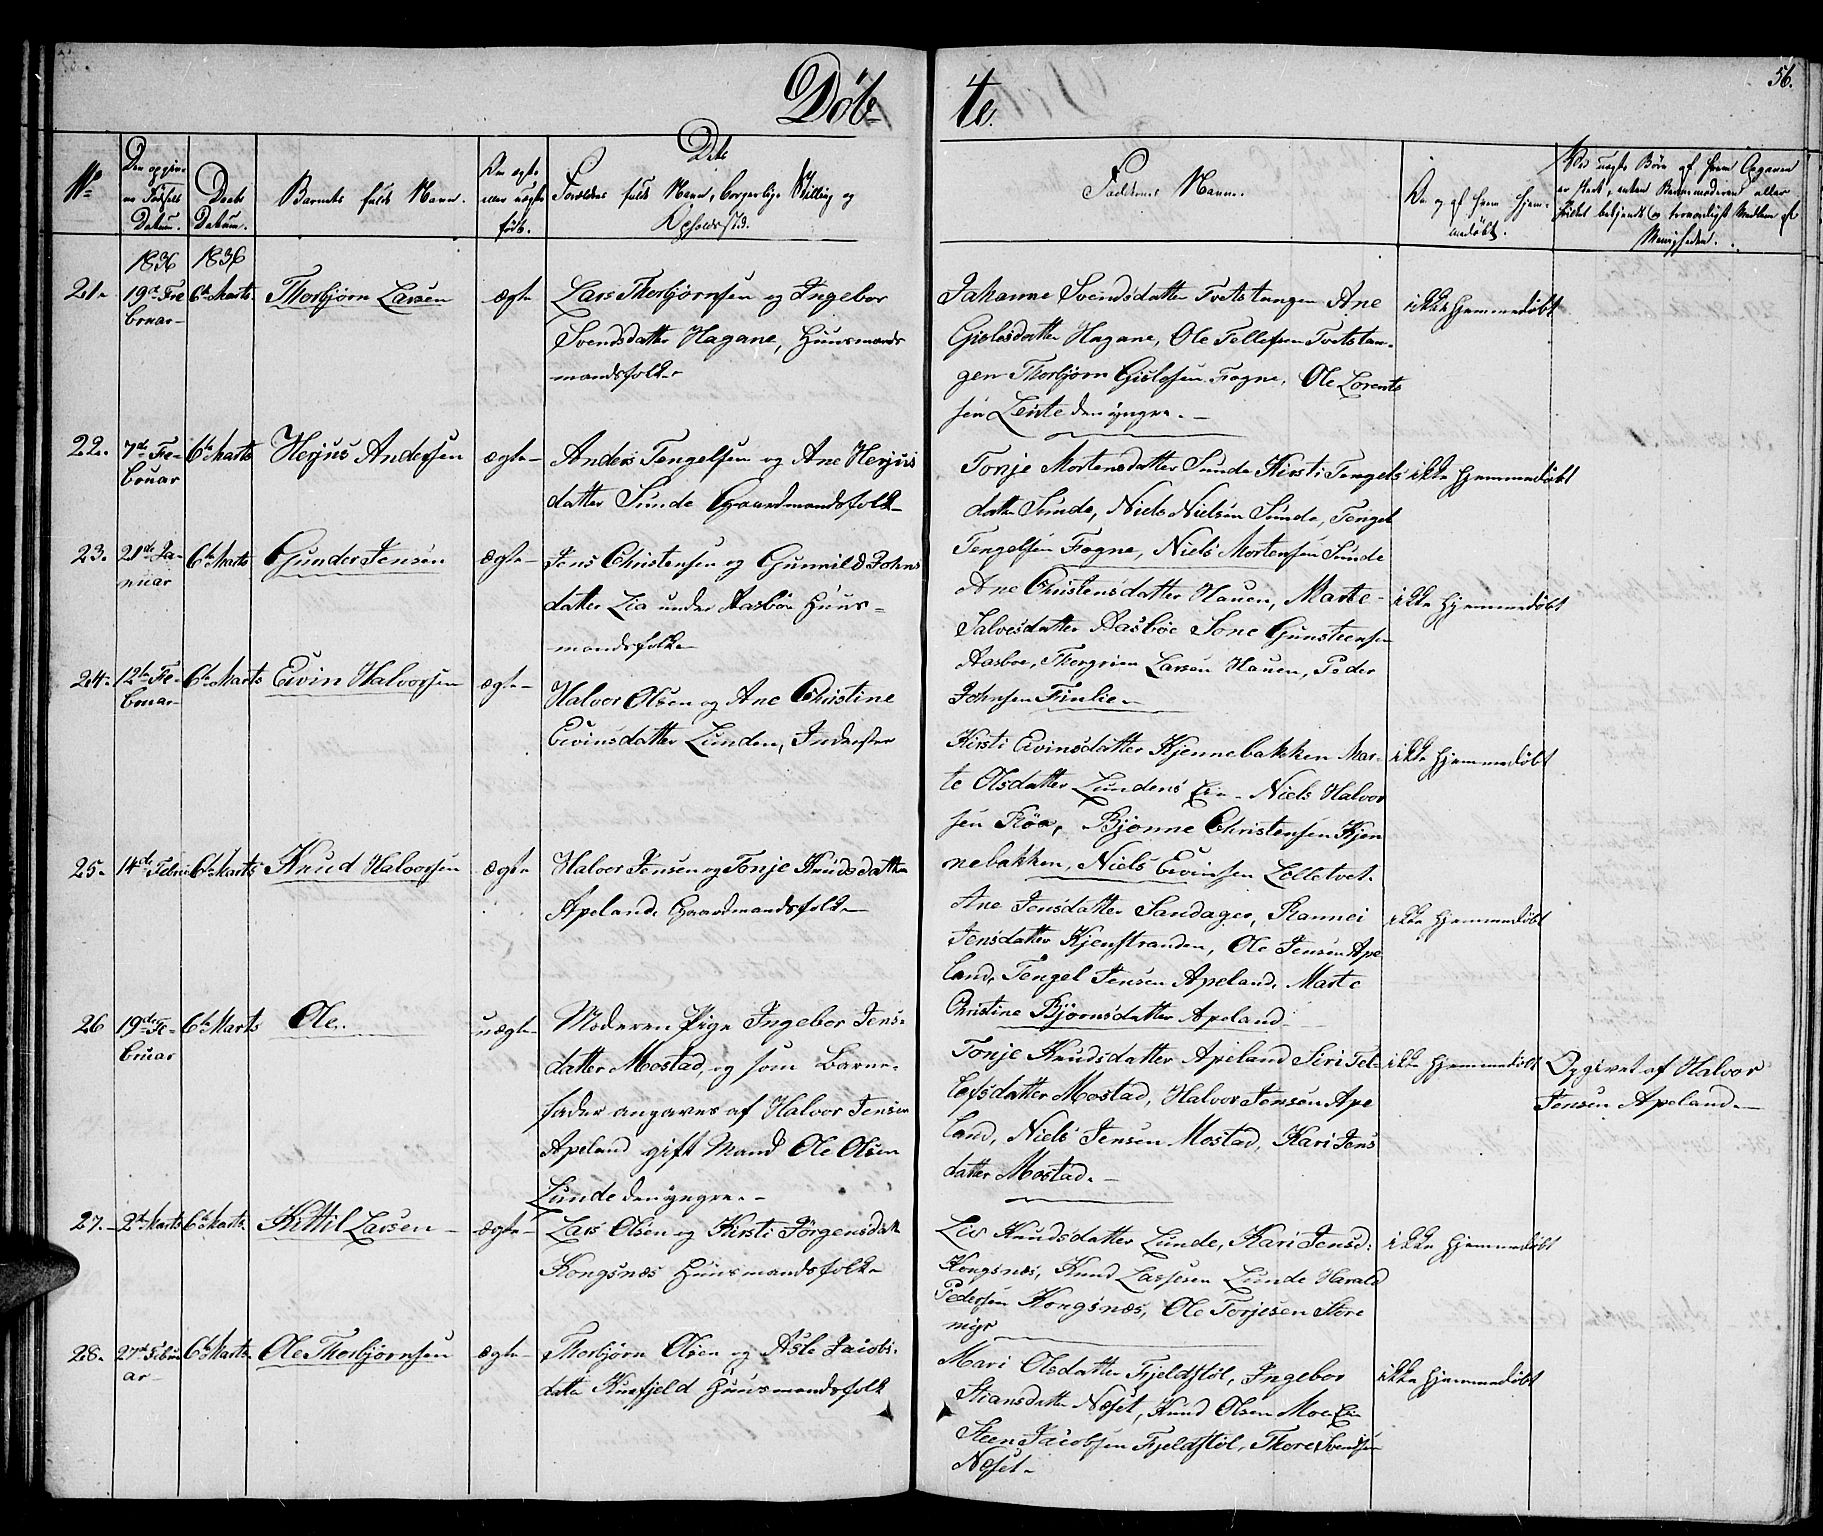 56.
Døb-
te.
No
Den opgiv-
ne Fødsels
Datum.
Daabs
Datum.
Barnets fulde Navn.
Om ægte
eller uægte
født.
Dets
Forældres fulde Navn, borgerlige Stilling og
Opholdssted.
Faddernes Navne.
Om og af hvem hjem-
medøbt.
Ved uægte Børn af hvem Opgaven
er skeet, enten Barnemoderen eller
Menigheden.
1836 1836
21. 19de Fe 6te Marts. Thorbjørn Larsen ægte Lars Thorbjørnsen og Ingebor
bruar
Svendsdatter Hagane, Huusmands
mandsfolk
Johanne Svendsdatter Tvetstangen Ane
Gislesdatter Hagane, Ole Tellefsen Tvetstan-
gen Thorbjørn Gislesen Fogne, Ole Lorents
sen Leiste den yngre.
ikke hjemmedøbt
22. 7de Fe- 6te Marts Herjus Andersen ægte Anders Tengelsen og Ane Herjus
bruar
datter Sunde Gaardmandsfolk
Tonje Mortensdatter Sunde Kirsti Tengels
datter Sunde, Niels Nielsen Sunde, Tengel
Tengelsen Fogne, Niels Mortensen Sunde
ikke hjemmedøbt
23. 21de Ja- 6te Marts Gunder Jensen ægte Jens Christensen og Gunnild Johns
nuar
datter Lia under Aasbøe Huus-
mandsfolk
Ane Christensdatter Hauen, Marte
Salvesdatter Aasbøe Sone Gunsteensen
Aasboe, Thorgrim Larsen Hauen, Peder
Johnsen Finlie
ikke hjemmedøbt
24. 12te Fe- 6te Marts Eivin Halvorsen ægte
bruar
Halvor Olsen og Ane Christine
Eivinsdatter Lunden, Inderster
Kirsti Eivinsdatter Kjennebakken Mar-
te Olsdatter Lundens Eie Niels Halvor
sen Röa, Bjönne Christensen Kjen
nebakken, Niels Eivinsen Lolletvet.
ikke hjemmedøbt
25. 14de Febr 6te Marts Knud Halvorsen ægte Halvor Jensen og Tonje Knudsdatter
Apeland, Gaardmandsfolk
Ane Jensdatter Sandager, Rannei
Jensdatter Kjenstranden, Ole Jensen Ape
land, Tengel Jensen Apeland, Marte
Christine Bjørnsdatter Apeland
ikke hjemmedøbt
26 19de Fe- 6te Marts Ole. uægte Moderen Pige Ingebor Jens-
bruar
datter Mostad, og som Barne-
fader angaves af Halvor Jensen
Apeland gift Mand Ole Olsen
Lunde den yngre.
Tonje Knudsdatter Apeland Siri Tel-
lefsdatter Mostad, Halvor Jensen Ape
land, Niels Jensen Mostad, Kari Jens
datter Mostad.
ikke hjemmedøbt
Opgivet af Halvor
Jensen Apeland.
27. 2de Marts 6te Marts. Kittil Larsen ægte Lars Olsen og Kirsti Jörgensdat
Kongsnæs Huusmandsfolk
Liv Knudsdatter Lunde, Kari Jensd:
Kongsnæs, Knud Lassesen Lunde Harald
Pedersen Kongsnæs, Ole Torjesen Store
myr
ikke hjemmedøbt
28. 27de Febru 6te Marts. Ole Thorbjørnsen ægte Thorbjørn Olsen og Asle Jacobs-
ar
datter Knefjeld Huusmandsfolk
Mari Olsdatter Fjeldstöl, Ingebor
Stiansdatter Næset, Knud Olsen Moe Eie
Steen Jacobsen Fjeldstöl, Thore Svendsen
Næset.
ikke hjemmedøbt